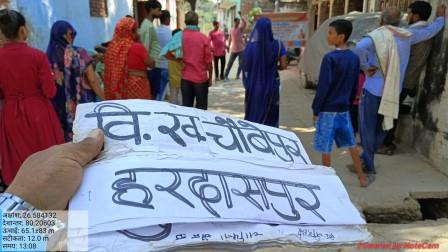 वि.ख.-चौबेपुर
हरदासपुर
अक्षांश: 26.584132
देशान्तर: 80.20803
ऊंचाई: 65.1±83 m
सटीकता: 12.0 m
समय: 13:08
Powered by NoteCam